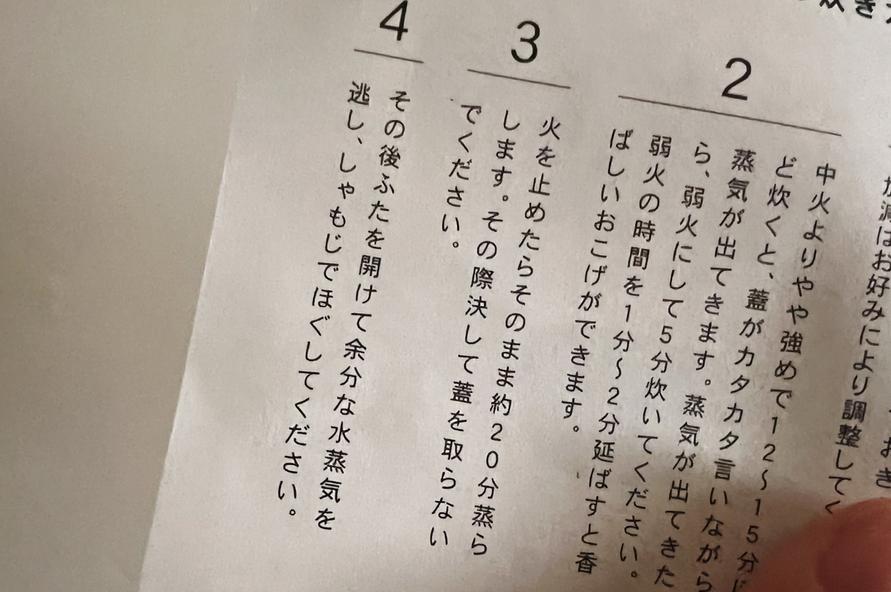 加減はお好みにより調整してく
2
中火よりやや強めで12〜15分ほ
ど炊くと、蓋がカタカタ言いながら
蒸気が出てきます。蒸気が出てきた
ら、弱火にして5分炊いてください。
弱火の時間を1分〜2分延ばすと香
ばしいおこげができます。
3
火を止めたらそのまま約20分蒸ら
します。その際決して蓋を取らない
でください。
4
その後ふたを開けて余分な水蒸気を
逃し、しゃもじでほぐしてください。